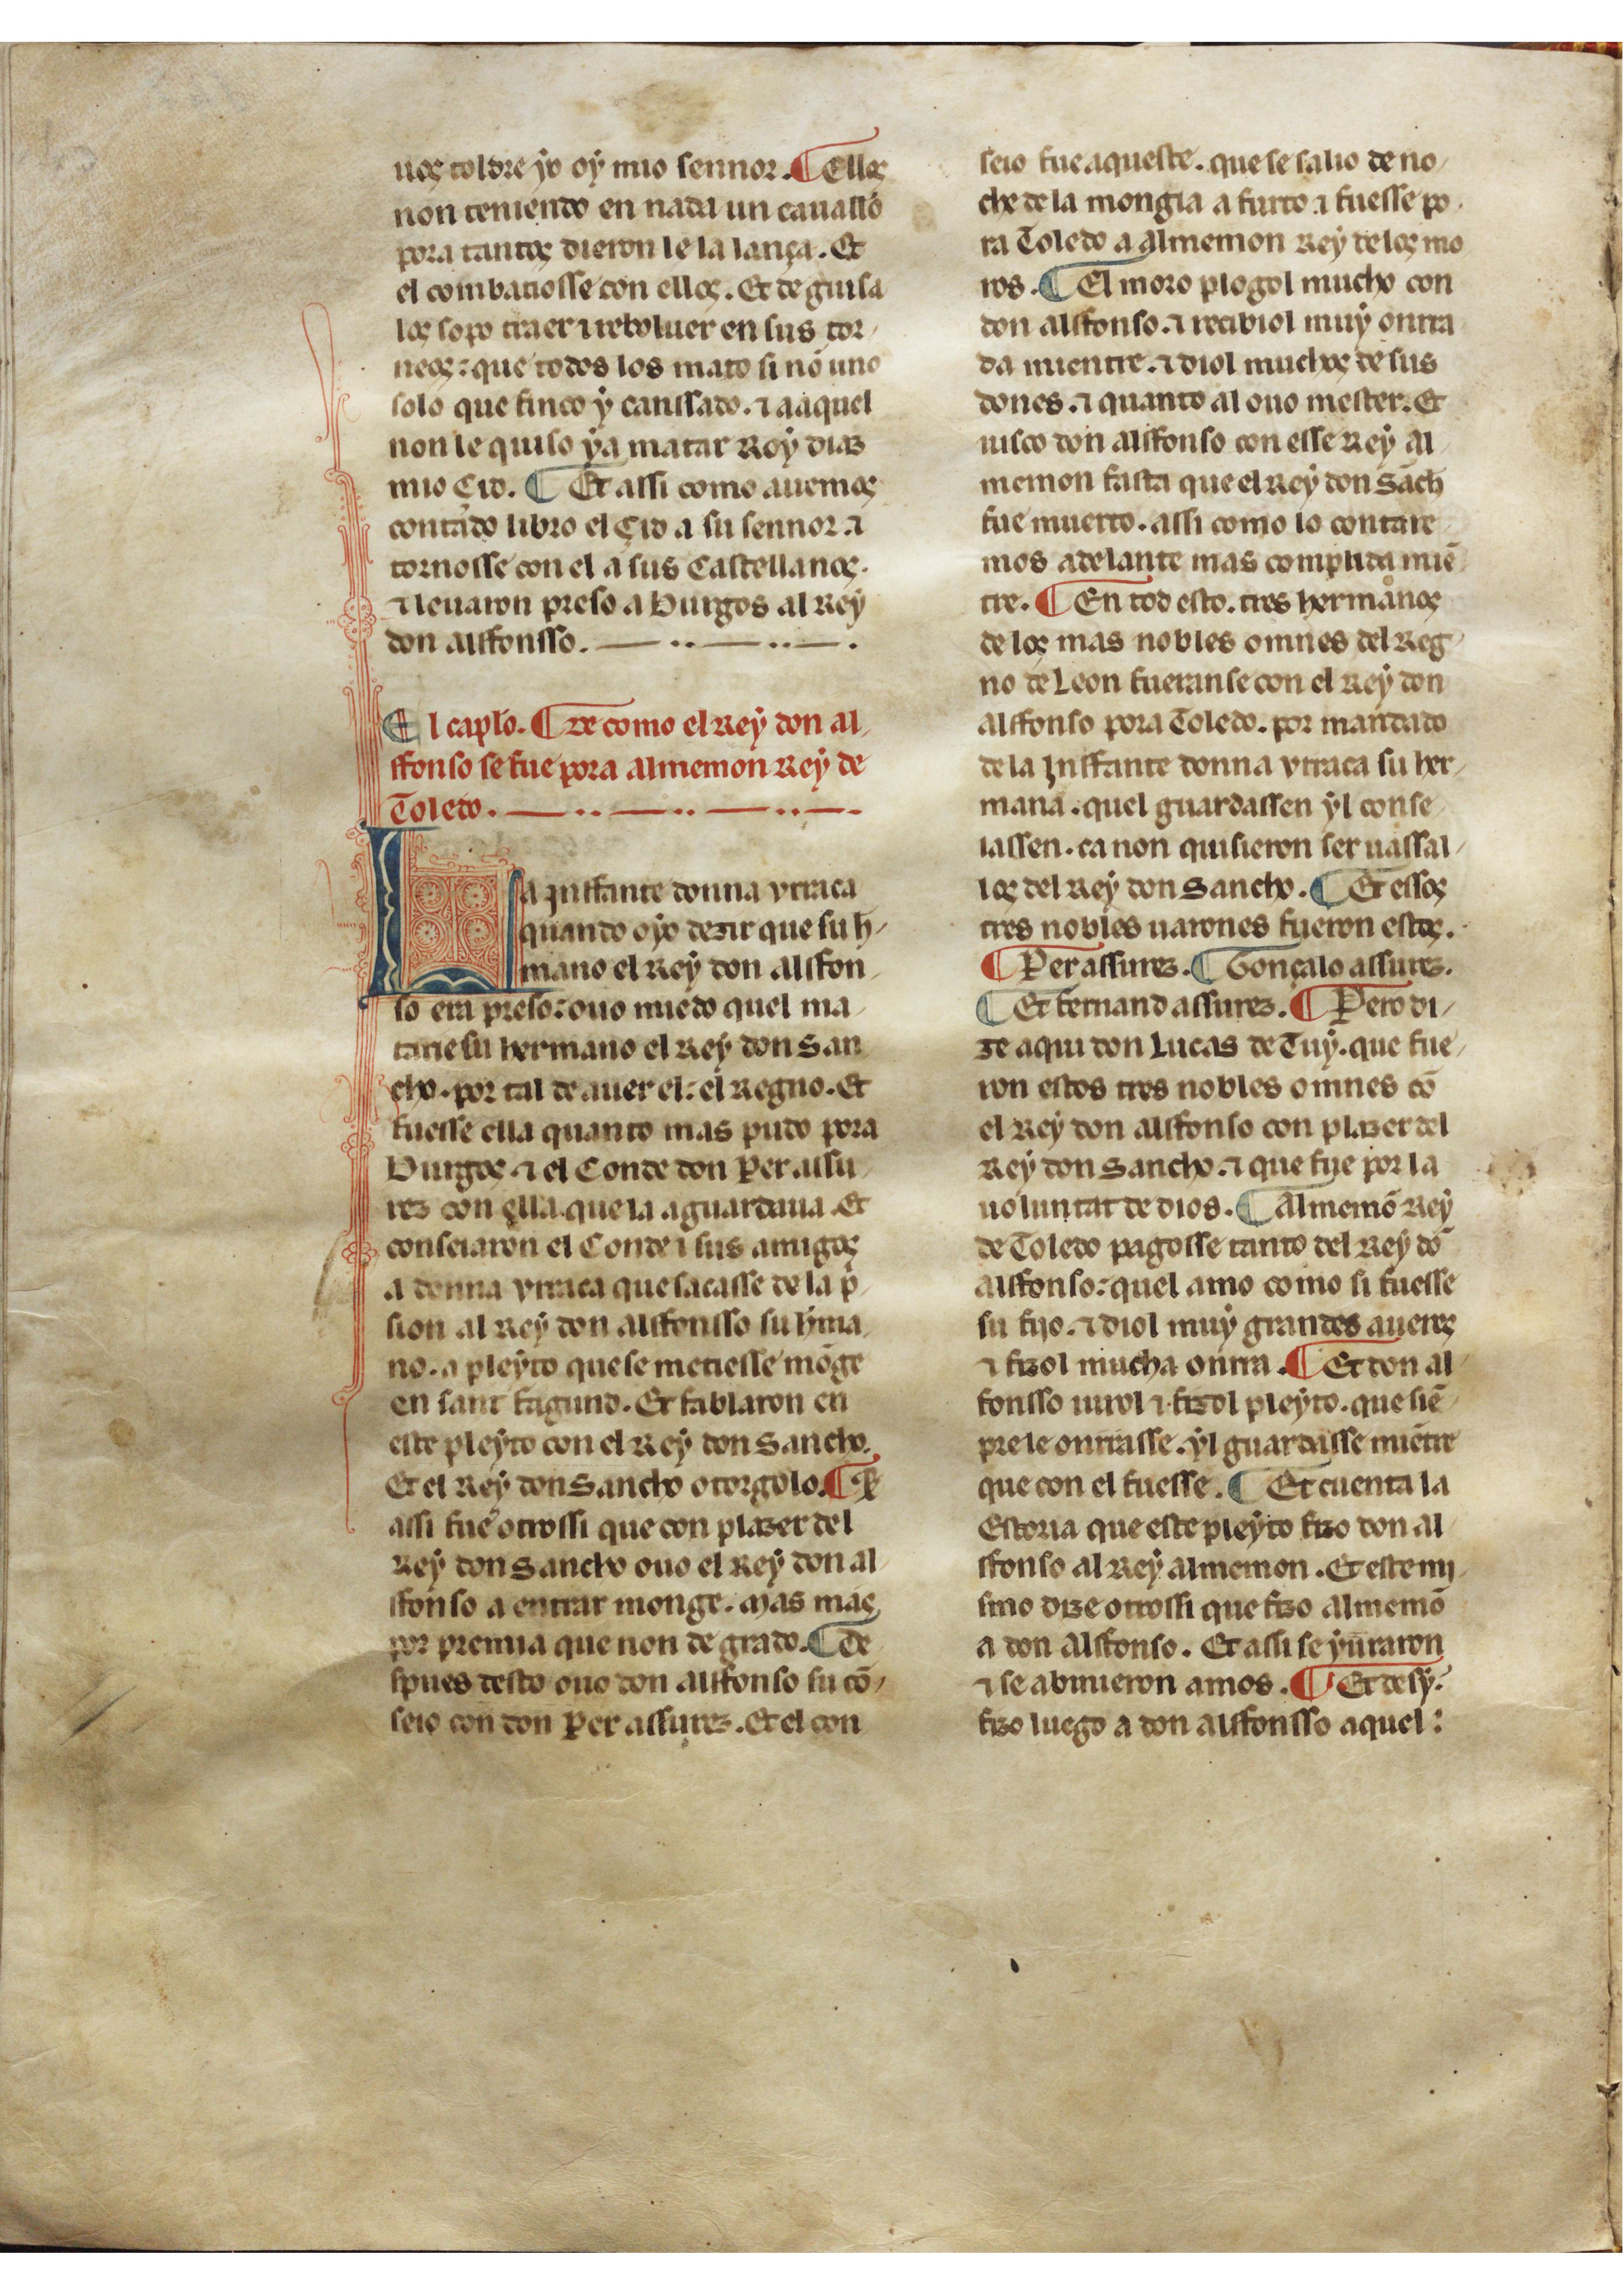 uos toldre yo oy mio sennor. ¶ Ellos
non teniendo en nada un cauallo
pora tantos dieron le la lança. Et
el combatiosse con ellos. Et de guisa
los sopo traer ⁊ reboluer en sus tor
neos: que todos los mato si nō uno
solo que finco y canssado. ⁊ a aquel
non le quiso ya matar Roy diaz
mio Çid. ¶ Et assi como auemos
contado libro el Çid a su sennor. ⁊
tornosse con el a sus Castellanos.
⁊ leuaron preso a Burgos al Rey
don alffonsso.
El caplo. ¶ De como el Rey don al
ffonso se fue pora almemon Rey de
Toledo.
La Inffante donna vrraca
quando oyo dezir que su h
mano el Rey don Alffon
so era preso: ouo miedo quel ma
tarie su hermano el Rey don San
cho. por tal de auer el: el Regno. Et
fuesse ella quanto mas pudo pora
Burgos. ⁊ el Conde don Per assu
rez con ella. que la aguardaua. Et
conseiaron el Conde ⁊ sus amigos
a donna vrraca que sacasse de la p̄
sion al Rey don alffonsso su hma
no. a pleyto que se metiesse mōge
en sant fagund. Et fablaron en
este pleyto con el Rey don Sancho.
Et el Rey don Sancho otorgolo. ¶ ⁊
assi fue otrossi que con plazer del
Rey don Sancho ouo el Rey don al
ffonso a entrar monge. mas mas
por premia que non de grado. ¶ De
spues desto ouo don alffonso su cō
seio con don Per assurez. Et el con
seio fue aqueste. que se salio de no
che de la mongia a furto ⁊ fuesse po
ra Toledo a Almemon Rey de los mo
ros. ¶ El moro plogol mucho con
don alffonso. ⁊ recibiol muy onrra
da mientre. ⁊ diol muchos de sus
dones. ⁊ quanto al ouo mester. Et
uisco don alffonso con esse Rey Al
memon fasta que el Rey don Sāch
fue muerto. assi como lo contare
mos adelante mas complida miē
tre. ¶ En tod esto. tres hermanos
de los mas nobles omnes del Reg
no de Leon fueranse con el Rey don
alffonso pora Toledo. por mandado
de la Inffante donna vrraca su her
mana. quel guardassen yl conse
iassen. ca non quisieron ser uassal
los del Rey don Sancho. ¶ Et essos
tres nobles uarones fueron estos.
¶ Per assurez. ¶ Gonçalo assurez.
¶ Et fernand assurez. ¶ Pero di
ze aqui don Lucas de Tuy. que fue
ron estos tres nobles omnes cō
el Rey don alffonso con plazer del
Rey don Sancho. ⁊ que fue por la
uoluntat de dios. ¶ Almemō Rey
de Toledo pagosse tanto del Rey dō
alffonso: quel amo como si fuesse
su fijo. ⁊ diol muy grandes aueres
⁊ fizol mucha onrra. ¶ Et don al
fonsso iurol ⁊ fizol pleyto. que siē
pre le onrrasse. yl guardasse miētre
que con el fuesse. ¶ Et cuenta la
Estoria que este pleyto fizo don al
ffonso al Rey almemon. Et este mi
smo dize otrossi que fizo almemō
a don Alffonso. Et assi se yūraron
⁊ se abinieron amos. ¶ Et desy:
fizo luego a don alffonsso aquel: